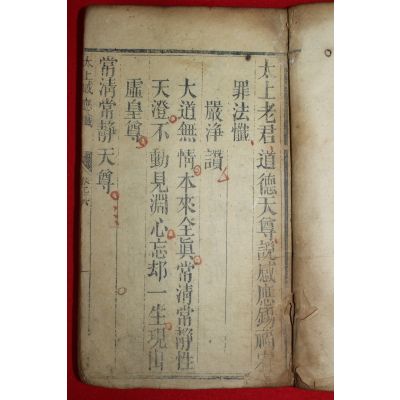 太上老君道德天尊說感應錫福宥
罪法懺
嚴淨讚
大道無情本來全真常清常靜性
天澄不動見淵心忘却一生現出
虛皇尊
常清常靜天尊
太上感應懺